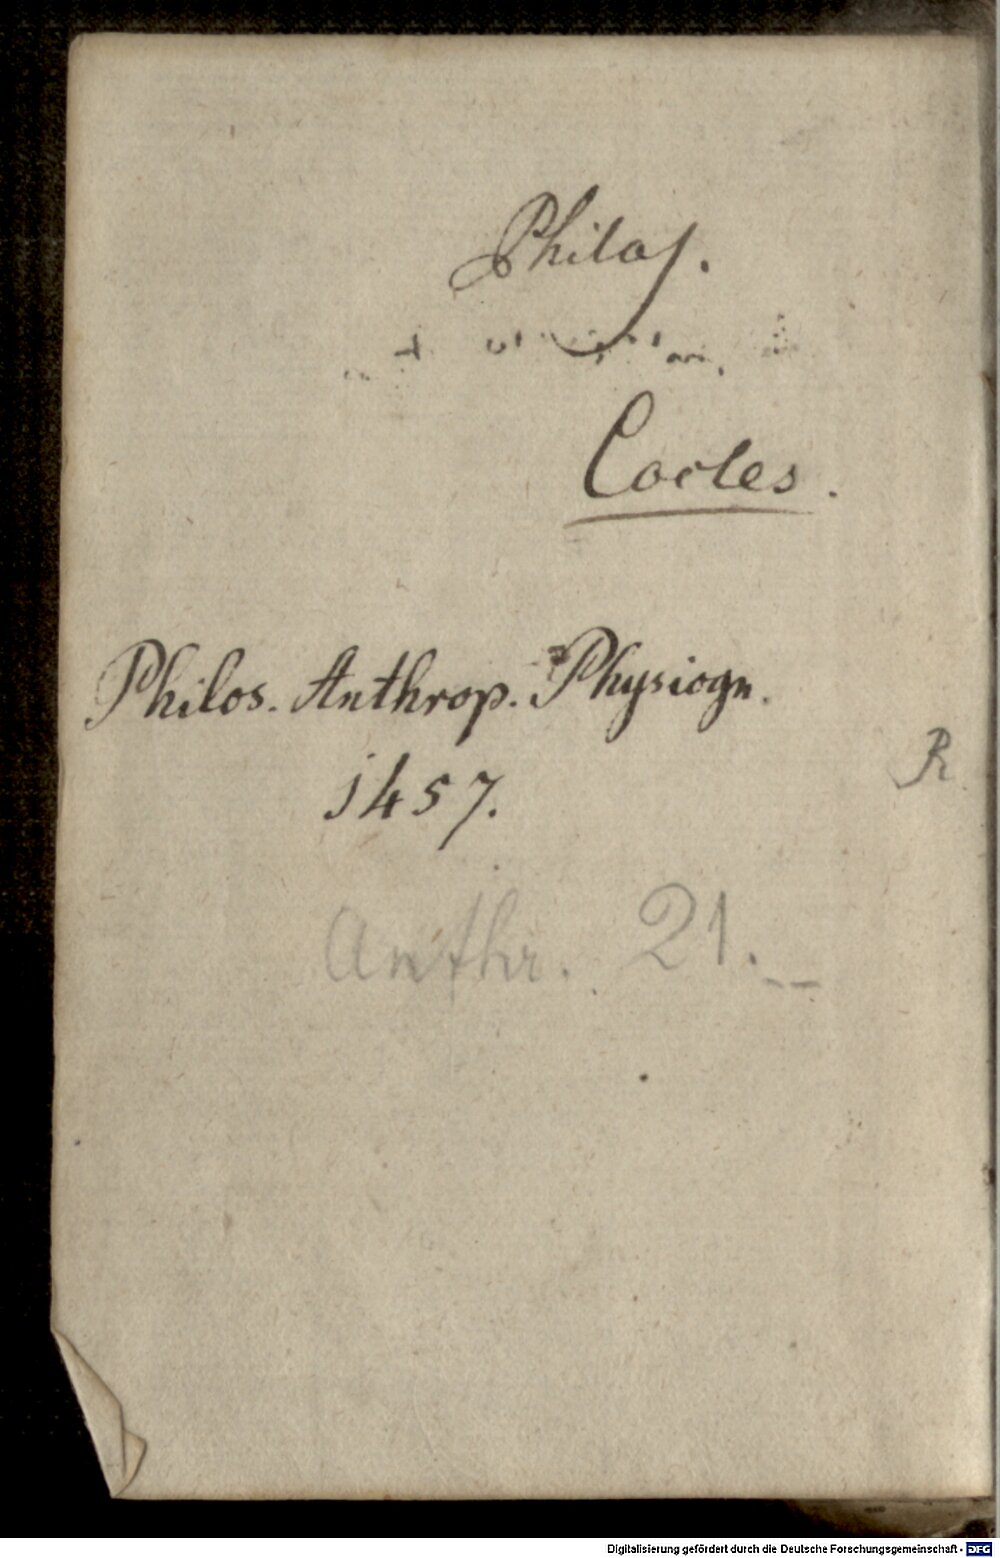 Philos.
Cocles.
Philos. Anthrop. Physiogn.
1457.
R
Anthr. 21.
Digitalisierung gefördert durch die Deutsche Forschungsgemeinschaft - DFG